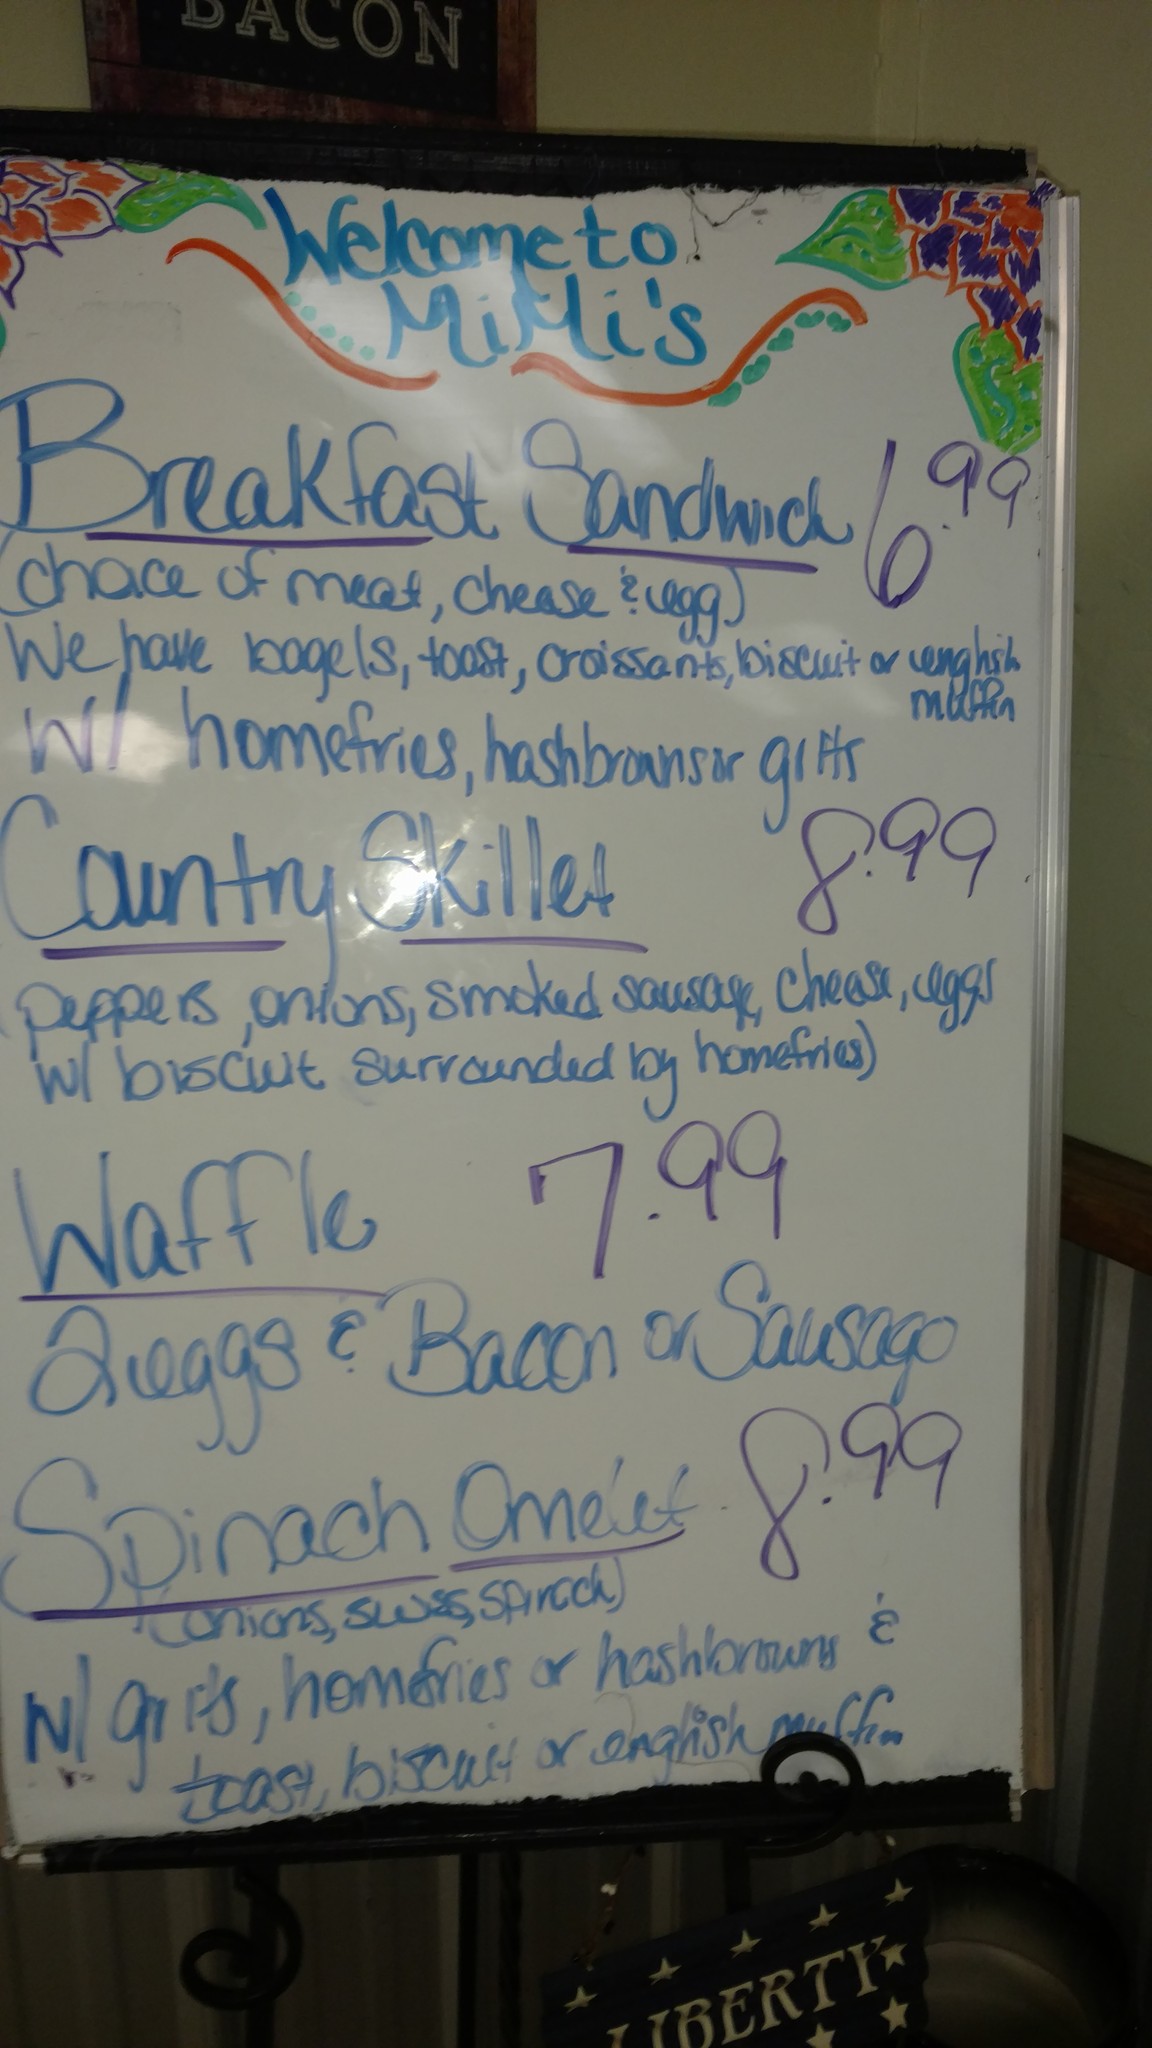 BACON
Welcome to
MiMi's
Breakfast Sandwich 6.99
(choice of meat, cheese & egg)
We have bagels, toast, croissants, biscuit or english
muffin
w/ homefries, hashbrowns or grits
Country Skillet 8.99
(peppers, onions, smoked sausage, cheese, eggs
w/ biscuit surrounded by homefries)
Waffle 7.99
2 eggs & Bacon or Sausage
Spinach Omelet 8.99
(onions, swiss, spinach)
w/ grits, homefries or hashbrowns &
toast, biscuit or english muffin
LIBERTY